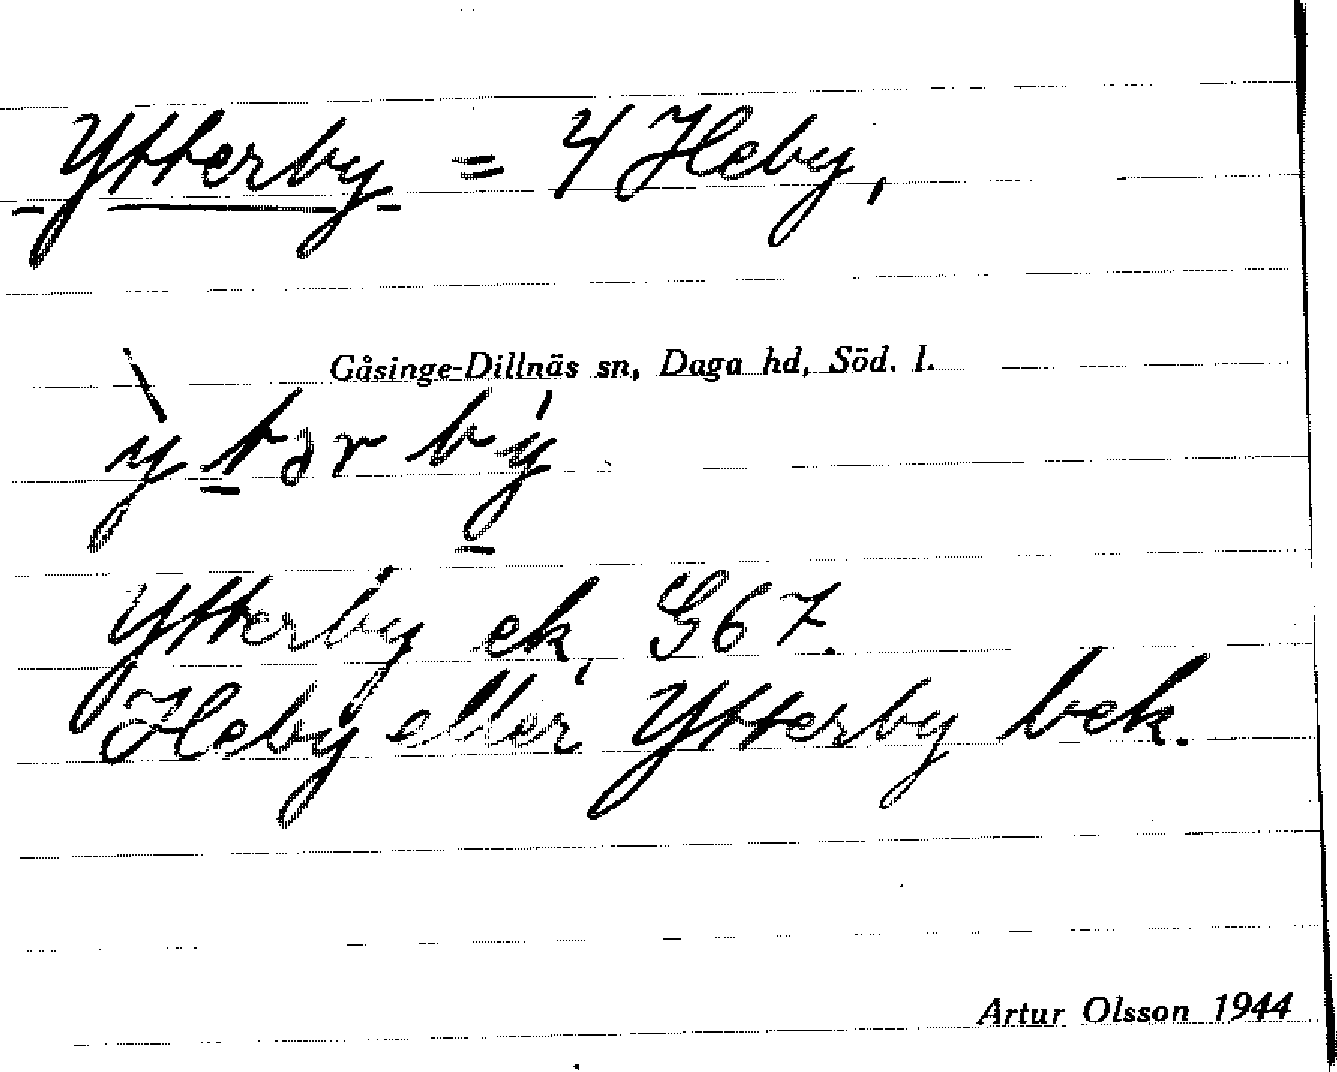 Ytterby = 4 Heby,
Gåsinge-Dillnäs sn, Daga hd, Söd. l.
ỳtərbý
Ytterby ek, G67.
Heby eller Ytterby bek.
Artur Olsson 1944